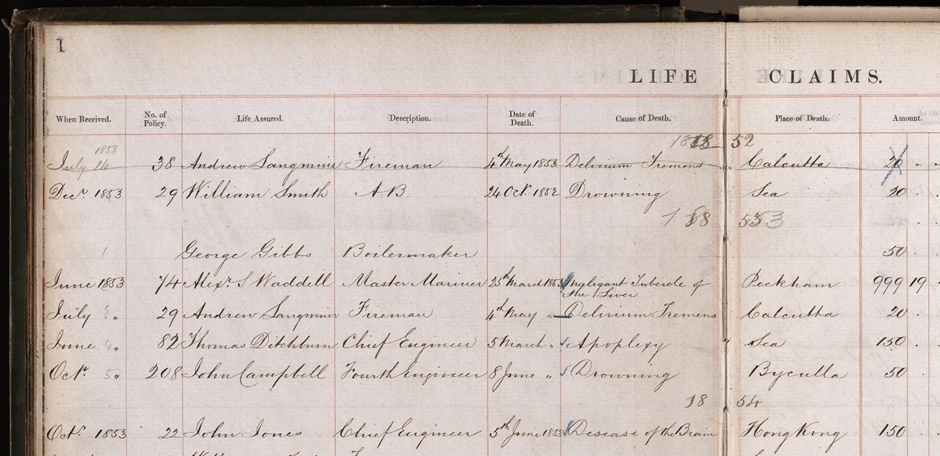 1
LIFE CLAIMS.
When Received. No. of Policy. Life Assured. Description. Date of Death. Cause of Death. Place of Death. Amount.
18 52
1853
July 14 38 Andrew Sangmuir Fireman 4th May 1853 Delirium Tremens Calcutta 20
Decr. 1853 29 William Smith A.B. 24 Oct. 1852 Drowning Sea 20
18 53
George Gibbs Boilermaker 50
June 1853 74 Alexr. S Waddell Master Mariner 25th March 1853 Malignant Tubercle of the Liver Peckham 999 19
July " 29 Andrew Sangmuir Fireman 4th May " Delirium Tremens Calcutta 20
June " 82 Thomas Ditchburn Chief Engineer 5 March " Apoplexy Sea 150
Octr. " 208 John Campbell Fourth Engineer 8 June " Drowning Byculla 50
18 54
Octr. 1853 22 John Jones Chief Engineer 5th June 1853 Disease of the Brain Hong Kong 150